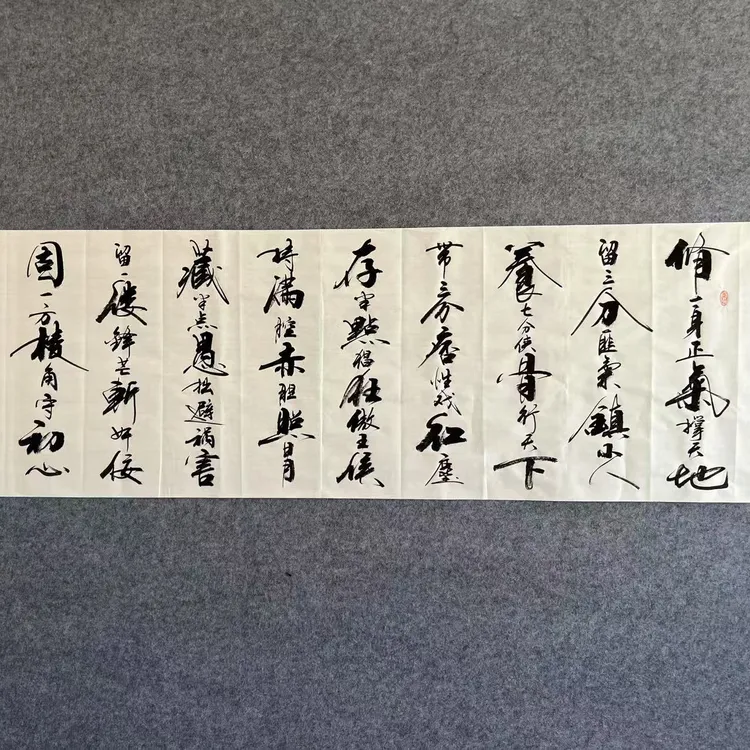 脩一身正氣撐天地
留三分匪氣鎮小人
養七分俠骨行天下
带三分痞性戏红塵
存半點猖狂傲王侯
持滿腔赤胆照日月
藏半点愚拙避祸害
留一缕鋒芒斬奸佞
固一方棱角守初心